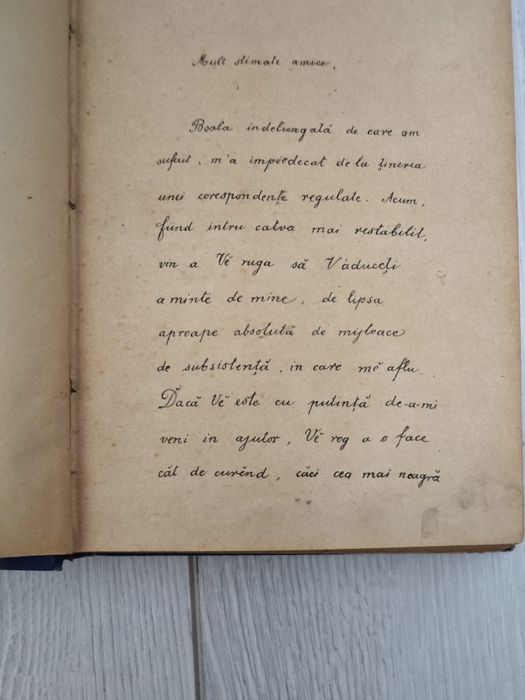 Mult stimate amice,
Boala indelungată de care am
suferit, m'a impĕdecat de la ţinerea
unei corespondenţe regulate. Acum,
fiind intru catva mai restabilit,
vin a Vĕ ruga să Văduceţi
aminte de mine, de lipsa
aproape absolută de mijloace
de subsistenţă, in care mĕ aflu.
Dacă Vĕ este cu putinţă de-a-mi
veni in ajutor, Vĕ rog a o face
căt de curĕnd, căci cea mai neagră